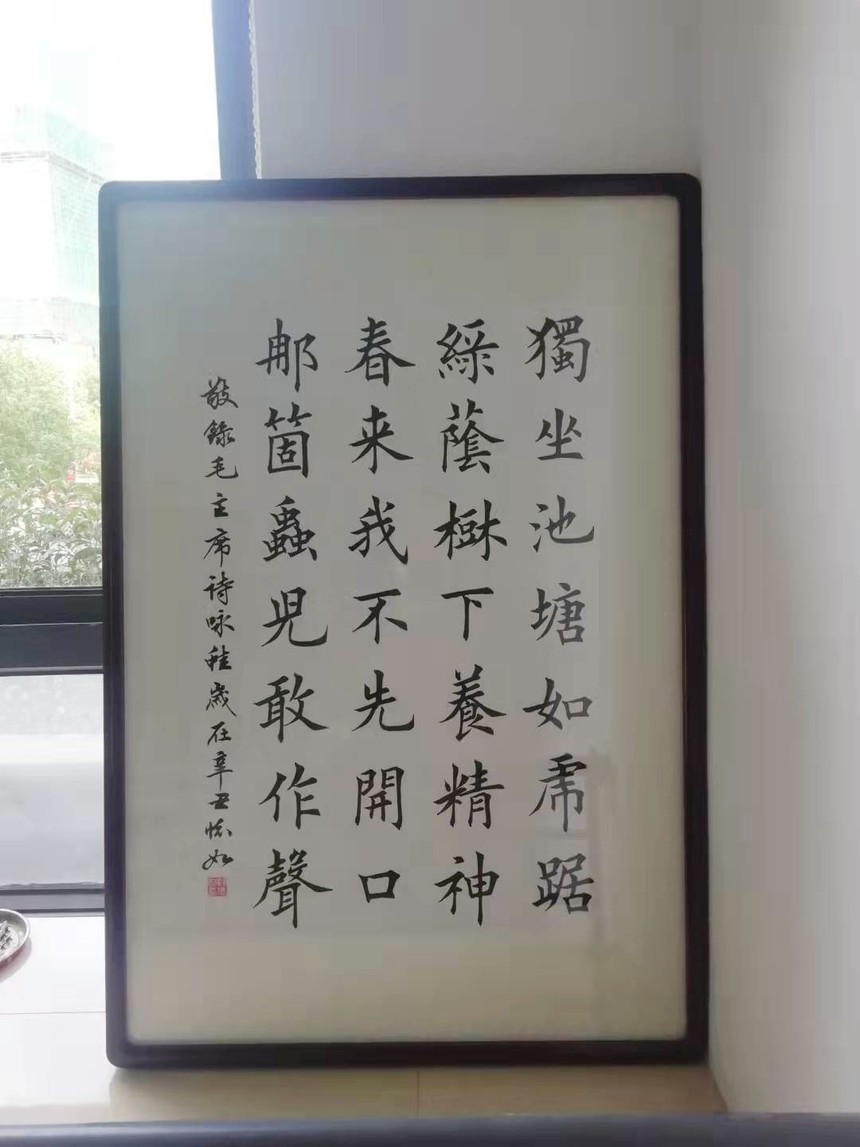 獨坐池塘如虎踞
綠蔭樹下養精神
春来我不先開口
那箇蟲児敢作聲
敬錄毛主席诗咏蛙歲在辛丑